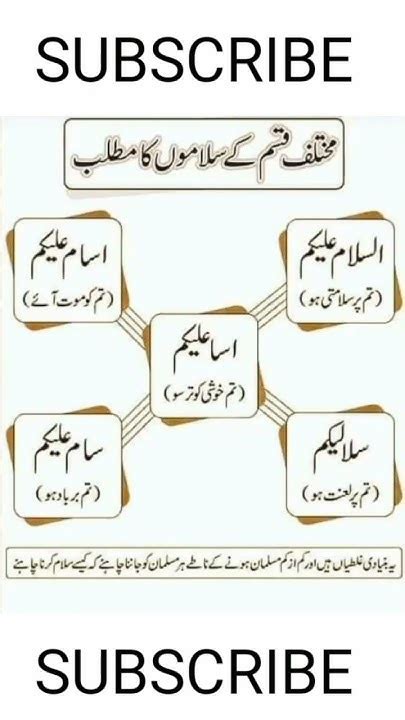 SUBSCRIBE
مختلف قسم کے سلاموں کا مطلب
السلام علیکم
(تم پر سلامتی ہو)
اسام علیکم
(تم کو موت آئے)
اسا علیکم
(تم خوشی کو ترسو)
سلا لیکم
(تم پر لعنت ہو)
سام علیکم
(تم برباد ہو)
یہ بنیادی غلطیاں ہیں اور کم از کم مسلمان ہونے کے ناطے ہر مسلمان کو جاننا چاہئے کہ کیسے سلام کرنا چاہئے
SUBSCRIBE